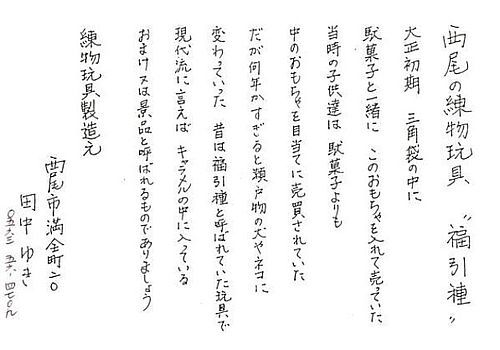 西尾の練物玩具 〝福引種〟
大正初期 三角袋の中に
駄菓子と一緒に このおもちゃを入れて売っていた
当時の子供達は 駄菓子よりも
中のおもちゃを目当てに売買されていた
だが何年かすぎると瀬戸物の犬やネコに
変わっていった 昔は福引種と呼ばれていた玩具で
現代流に言えば キャラメルの中に入っている
おまけ又は景品と呼ばれるものでありましょう
練物玩具製造元
西尾市満全町二〇
田中ゆき